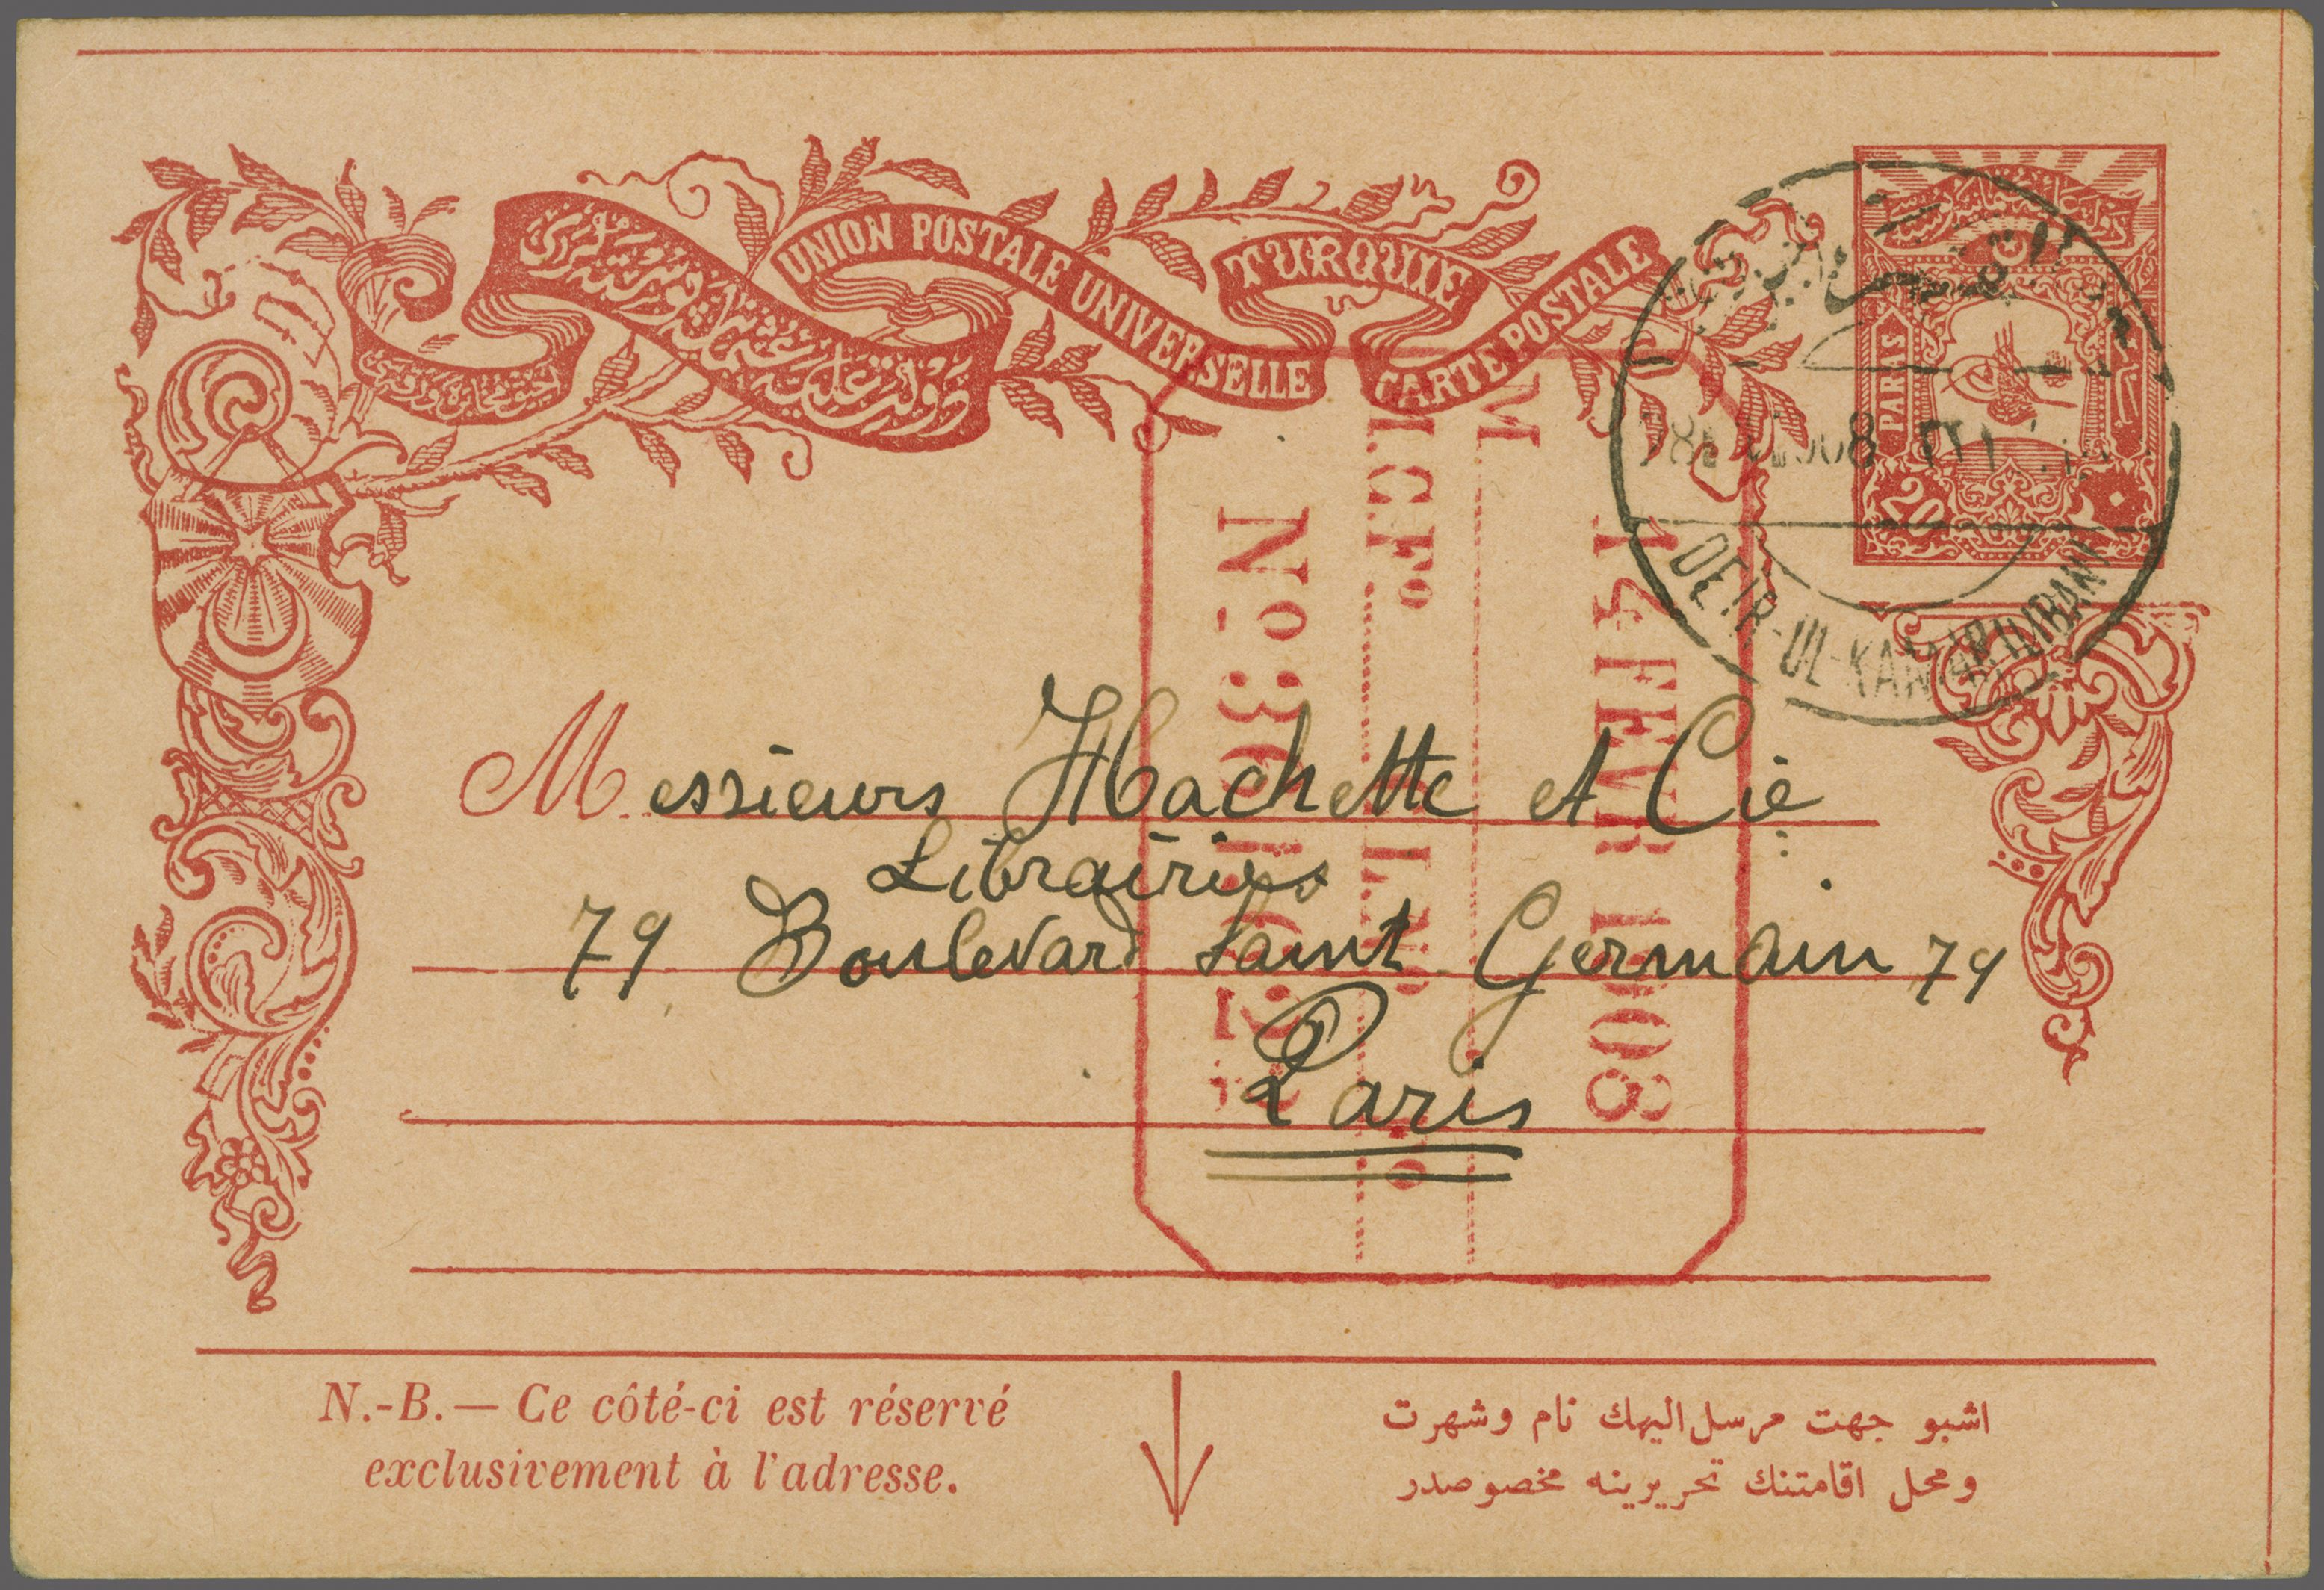 دولت علیۀ عثمانیه پوسته لری
UNION POSTALE UNIVERSELLE
TURQUIE
CARTE POSTALE
PARAS
20
٢٠
1908
DEIR-UL-KAMAR (LIBAN)
14 FEVR 1908
M
No 36
Messieurs Hachette et Cie
Librairies
79 Boulevard Saint Germain 79
Paris
N.-B.— Ce côté-ci est réservé
exclusivement à l'adresse.
اشبو جهت مرسل الیهك نام وشهرت
ومحل اقامتنك تحریرینه مخصوصدر